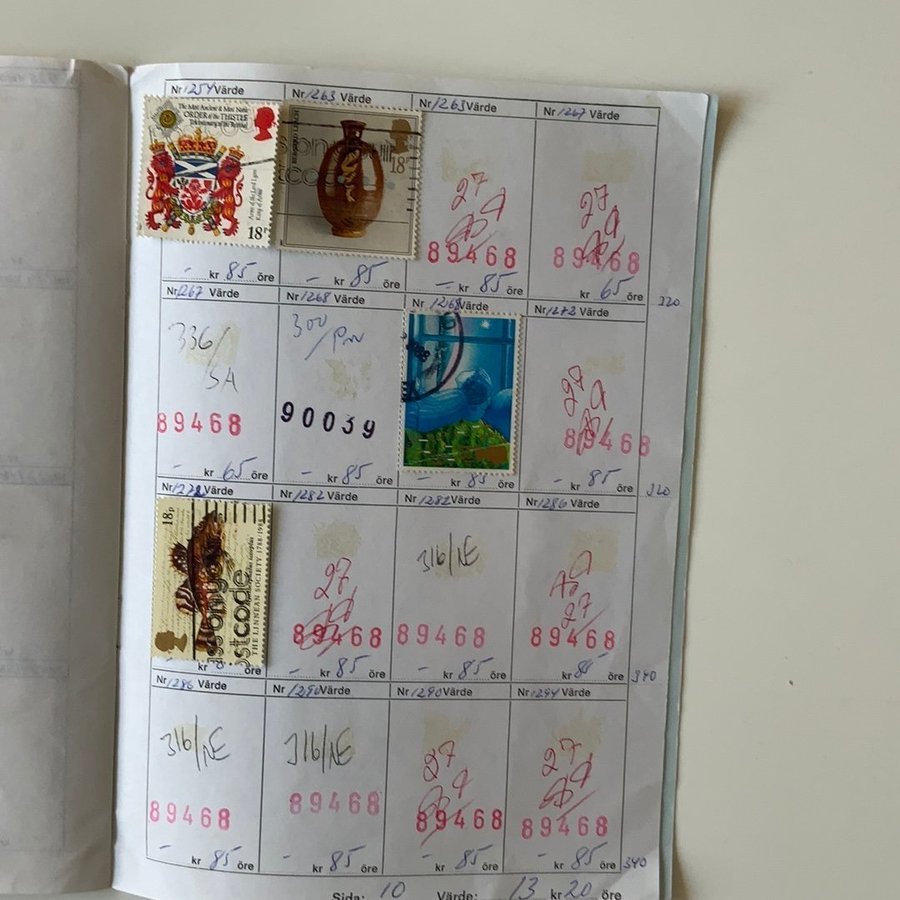 Nr 1254 Värde Nr 1263 Värde Nr 1263 Värde Nr 1267 Värde
The Most Ancient & Most Noble
ORDER of the THISTLE
Tercentenary of the Revival
Arms of the Lord Lyon
King of Arms
18p
BERNARD LEACH
18p
27
89468
27
89468
- kr 85 öre - kr 85 öre - kr 85 öre kr 65 öre 320
Nr 1267 Värde Nr 1268 Värde Nr 1268 Värde Nr 1272 Värde
336/
SA
89468
300
/PM
90039
27
89468
- kr 65 öre - kr 85 öre - kr 85 öre - kr 85 öre 320
Nr 1272 Värde Nr 1282 Värde Nr 1282 Värde Nr 1286 Värde
18p
THE LINNEAN SOCIETY 1788-1988
postcode
27
89468
316/NE
89468
27
89468
- kr öre - kr 85 öre - kr 85 öre kr 85 öre 340
Nr 1286 Värde Nr 1290 Värde Nr 1290 Värde Nr 1294 Värde
316/NE
89468
316/NE
89468
27
89468
27
89468
- kr 85 öre - kr 85 öre - kr 85 öre - kr 85 öre 340
Sida: 10 Värde: 13 kr 20 öre